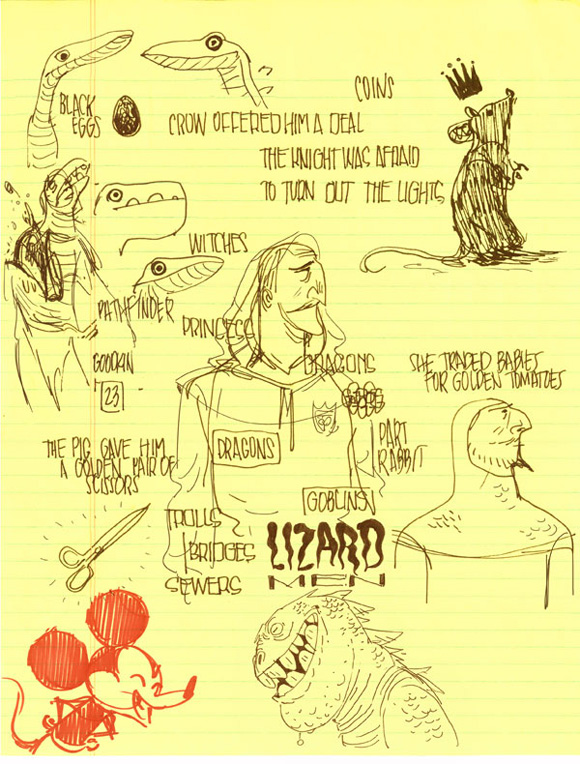 COINS
BLACK
EGGS
CROW OFFERED HIM A DEAL
THE KNIGHT WAS AFRAID
TO TURN OUT THE LIGHTS
WITCHES
PATHFINDER
PRINCESS
GOODKIN
23
DRAGONS
SHE TRADED BABIES
FOR GOLDEN TOMATOES
THE PIG GAVE HIM
A GOLDEN PAIR OF
SCISSORS
DRAGONS
PART
RABBIT
GOBLINS
TROLLS
BRIDGES
SEWERS
LIZARD
MEN